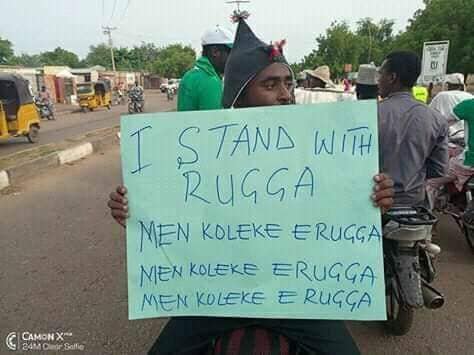 I STAND WITH
RUGGA
MEN KOLEKE ERUGGA
MEN KOLEKE ERUGGA
MEN KOLEKE E RUGGA
CAMON X PRO
24M Clear Selfie